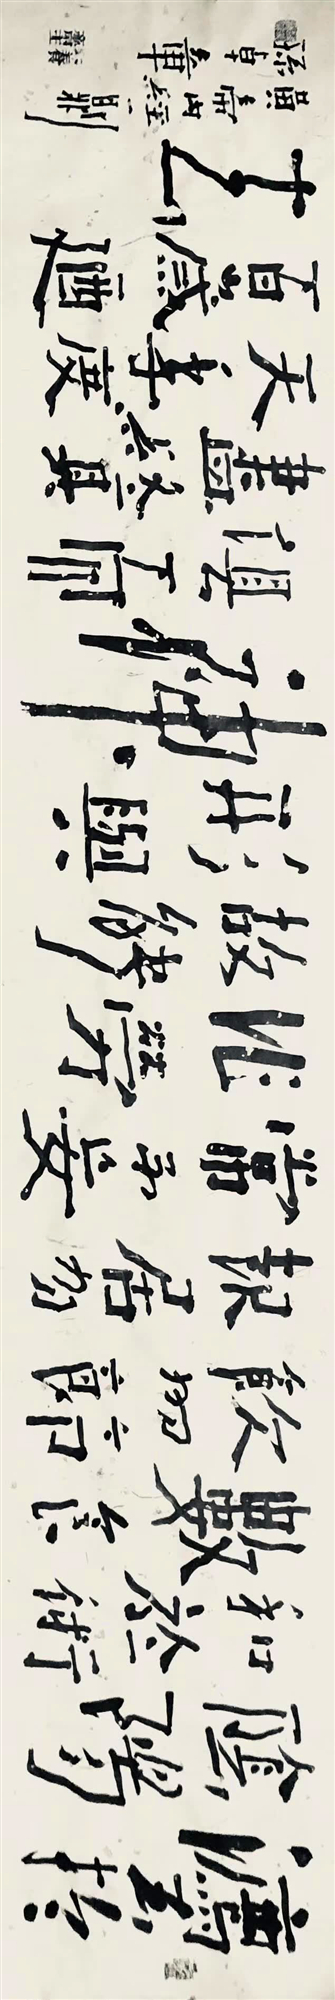 灋於
陰陽
和於術
數食
飲有節
起居有
常不妄
作勞
故能
形與
神
俱而
盡終其
天年度
百歲廼
去
黃帝內經